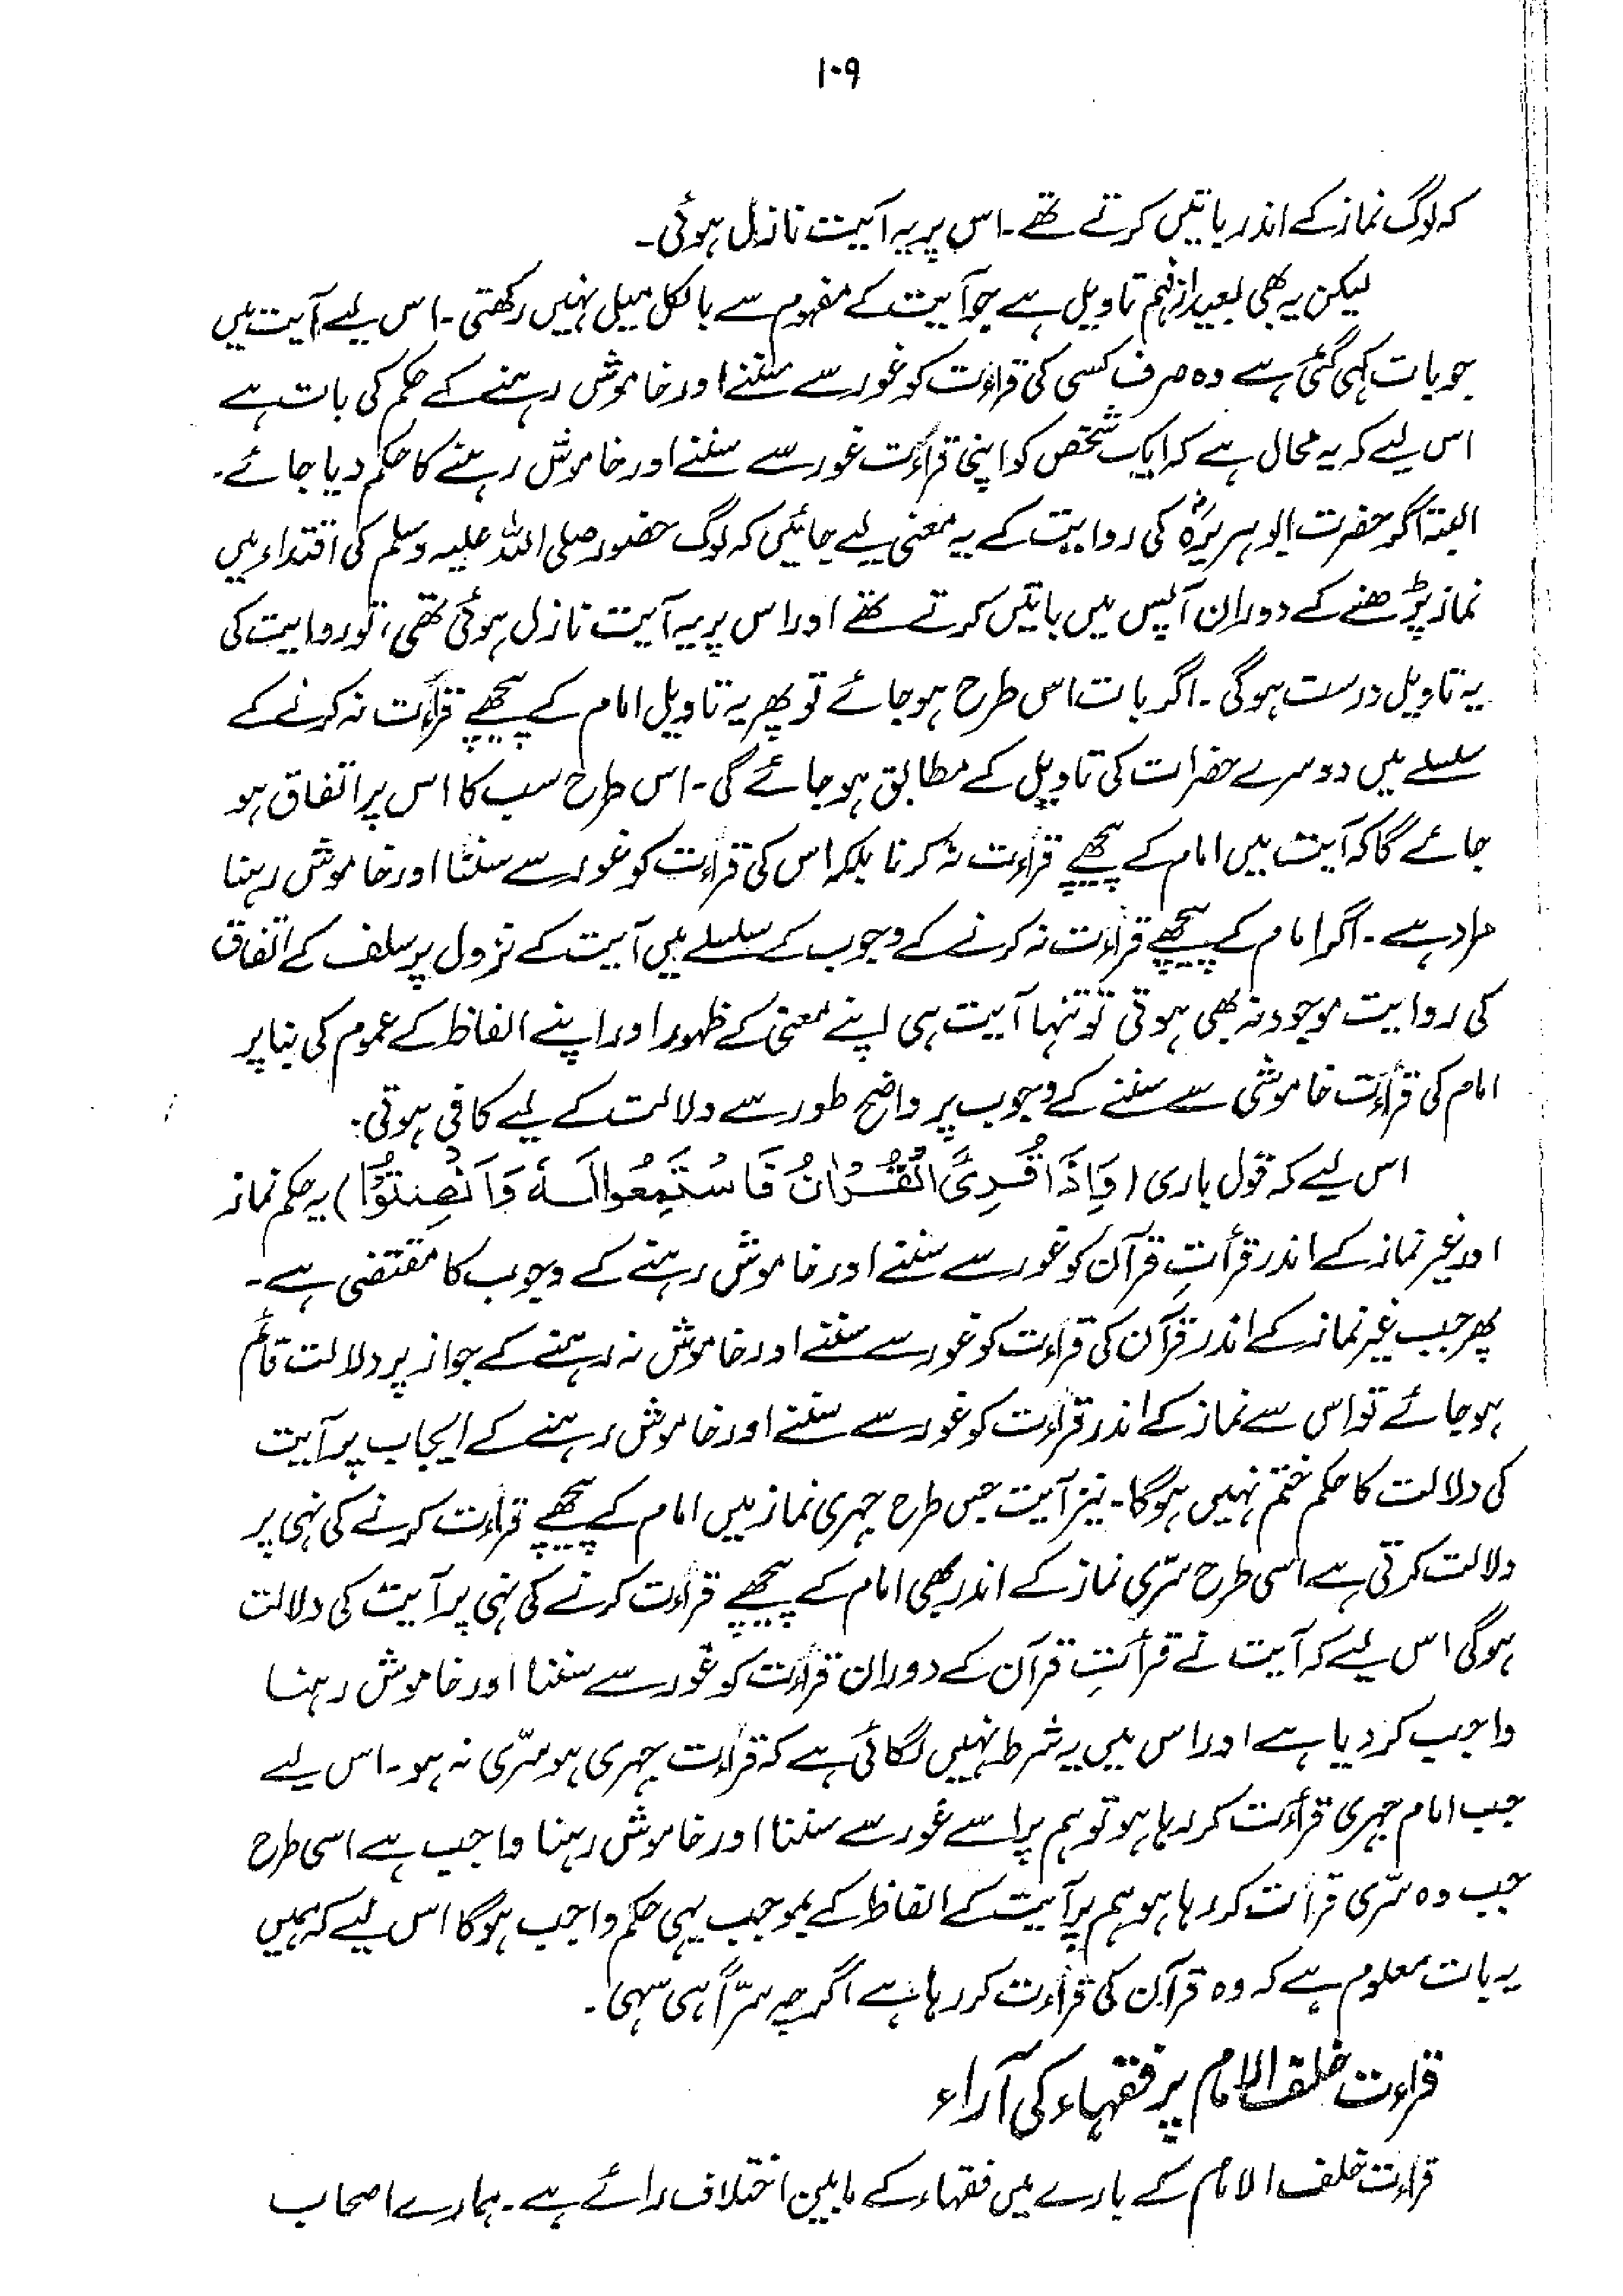 ۱۰۹
کہ لوگ نماز کے اندر باتیں کرتے تھے۔ اس پر یہ آیت نازل ہوئی۔
لیکن یہ بھی بعید از فہم تاویل ہے جو آیت کے مفہوم سے بالکل میل نہیں رکھتی۔ اس لیے آیت میں
جو بات کہی گئی ہے وہ صرف کسی کی قراءت کو غور سے سننے اور خاموش رہنے کے حکم کی بات ہے
اس لیے کہ یہ محال ہے کہ ایک شخص کو اپنی قراءت غور سے سننے اور خاموش رہنے کا حکم دیا جائے۔
البتہ اگر حضرت ابو ہریرہؓ کی روایت کے یہ معنی لیے جائیں کہ لوگ حضور صلی اللہ علیہ وسلم کی اقتداء میں
نماز پڑھنے کے دوران آپس میں باتیں کرتے تھے اور اس پر یہ آیت نازل ہوئی تھی، تو روایت کی
یہ تاویل درست ہوگی۔ اگر بات اس طرح ہو جائے تو پھر یہ تاویل امام کے پیچھے قراءت نہ کرنے کے
سلسلے میں دوسرے حضرات کی تاویل کے مطابق ہو جائے گی۔ اس طرح سب کا اس پر اتفاق ہو
جائے گا کہ آیت میں امام کے پیچھے قراءت نہ کرنا بلکہ اس کی قراءت کو غور سے سننا اور خاموش رہنا
مراد ہے۔ اگر امام کے پیچھے قراءت نہ کرنے کے وجوب کے سلسلے میں آیت کے نزول پر سلف کے اتفاق
کی روایت موجود نہ بھی ہوتی تو تنہا آیت ہی اپنے معنی کے ظہور اور اپنے الفاظ کے عموم کی بنا پر
امام کی قراءت خاموشی سے سننے کے وجوب پر واضح طور سے دلالت کے لیے کافی ہوتی۔
اس لیے کہ قول باری (وَاِذَا قُرِیَٔ الْقُرْاٰنُ فَاسْتَمِعُوْا لَهٗ وَاَنْصِتُوْا) یہ حکم نماز
اور غیر نماز کے اندر قرأتِ قرآن کو غور سے سننے اور خاموش رہنے کے وجوب کا مقتضی ہے۔
پھر جب غیر نماز کے اندر قرآن کی قراءت کو غور سے سننے اور خاموش نہ رہنے کے جواز پر دلالت قائم
ہو جائے تو اس سے نماز کے اندر قراءت کو غور سے سننے اور خاموش رہنے کے ایجاب پر آیت
کی دلالت کا حکم ختم نہیں ہوگا۔ نیز آیت جس طرح جہری نماز میں امام کے پیچھے قراءت کرنے کی نہی پر
دلالت کرتی ہے اسی طرح سرّی نماز کے اندر بھی امام کے پیچھے قراءت کرنے کی نہی پر آیت کی دلالت
ہوگی اس لیے کہ آیت نے قرأتِ قرآن کے دوران قراءت کو غور سے سننا اور خاموش رہنا
واجب کر دیا ہے اور اس میں یہ شرط نہیں لگائی ہے کہ قراءت جہری ہو سرّی نہ ہو۔ اس لیے
جب امام جہری قراءت کر رہا ہو تو ہم پر اسے غور سے سننا اور خاموش رہنا واجب ہے اسی طرح
جب وہ سرّی قراءت کر رہا ہو ہم پر آیت کے الفاظ کے بموجب یہی حکم واجب ہوگا اس لیے کہ ہمیں
یہ بات معلوم ہے کہ وہ قرآن کی قراءت کر رہا ہے اگرچہ سرّاً ہی سہی۔
قراءت خلف الامام پر فقہاء کی آراء
قراءت خلف الامام کے بارے میں فقہاء کے مابین اختلاف رائے ہے۔ ہمارے اصحاب